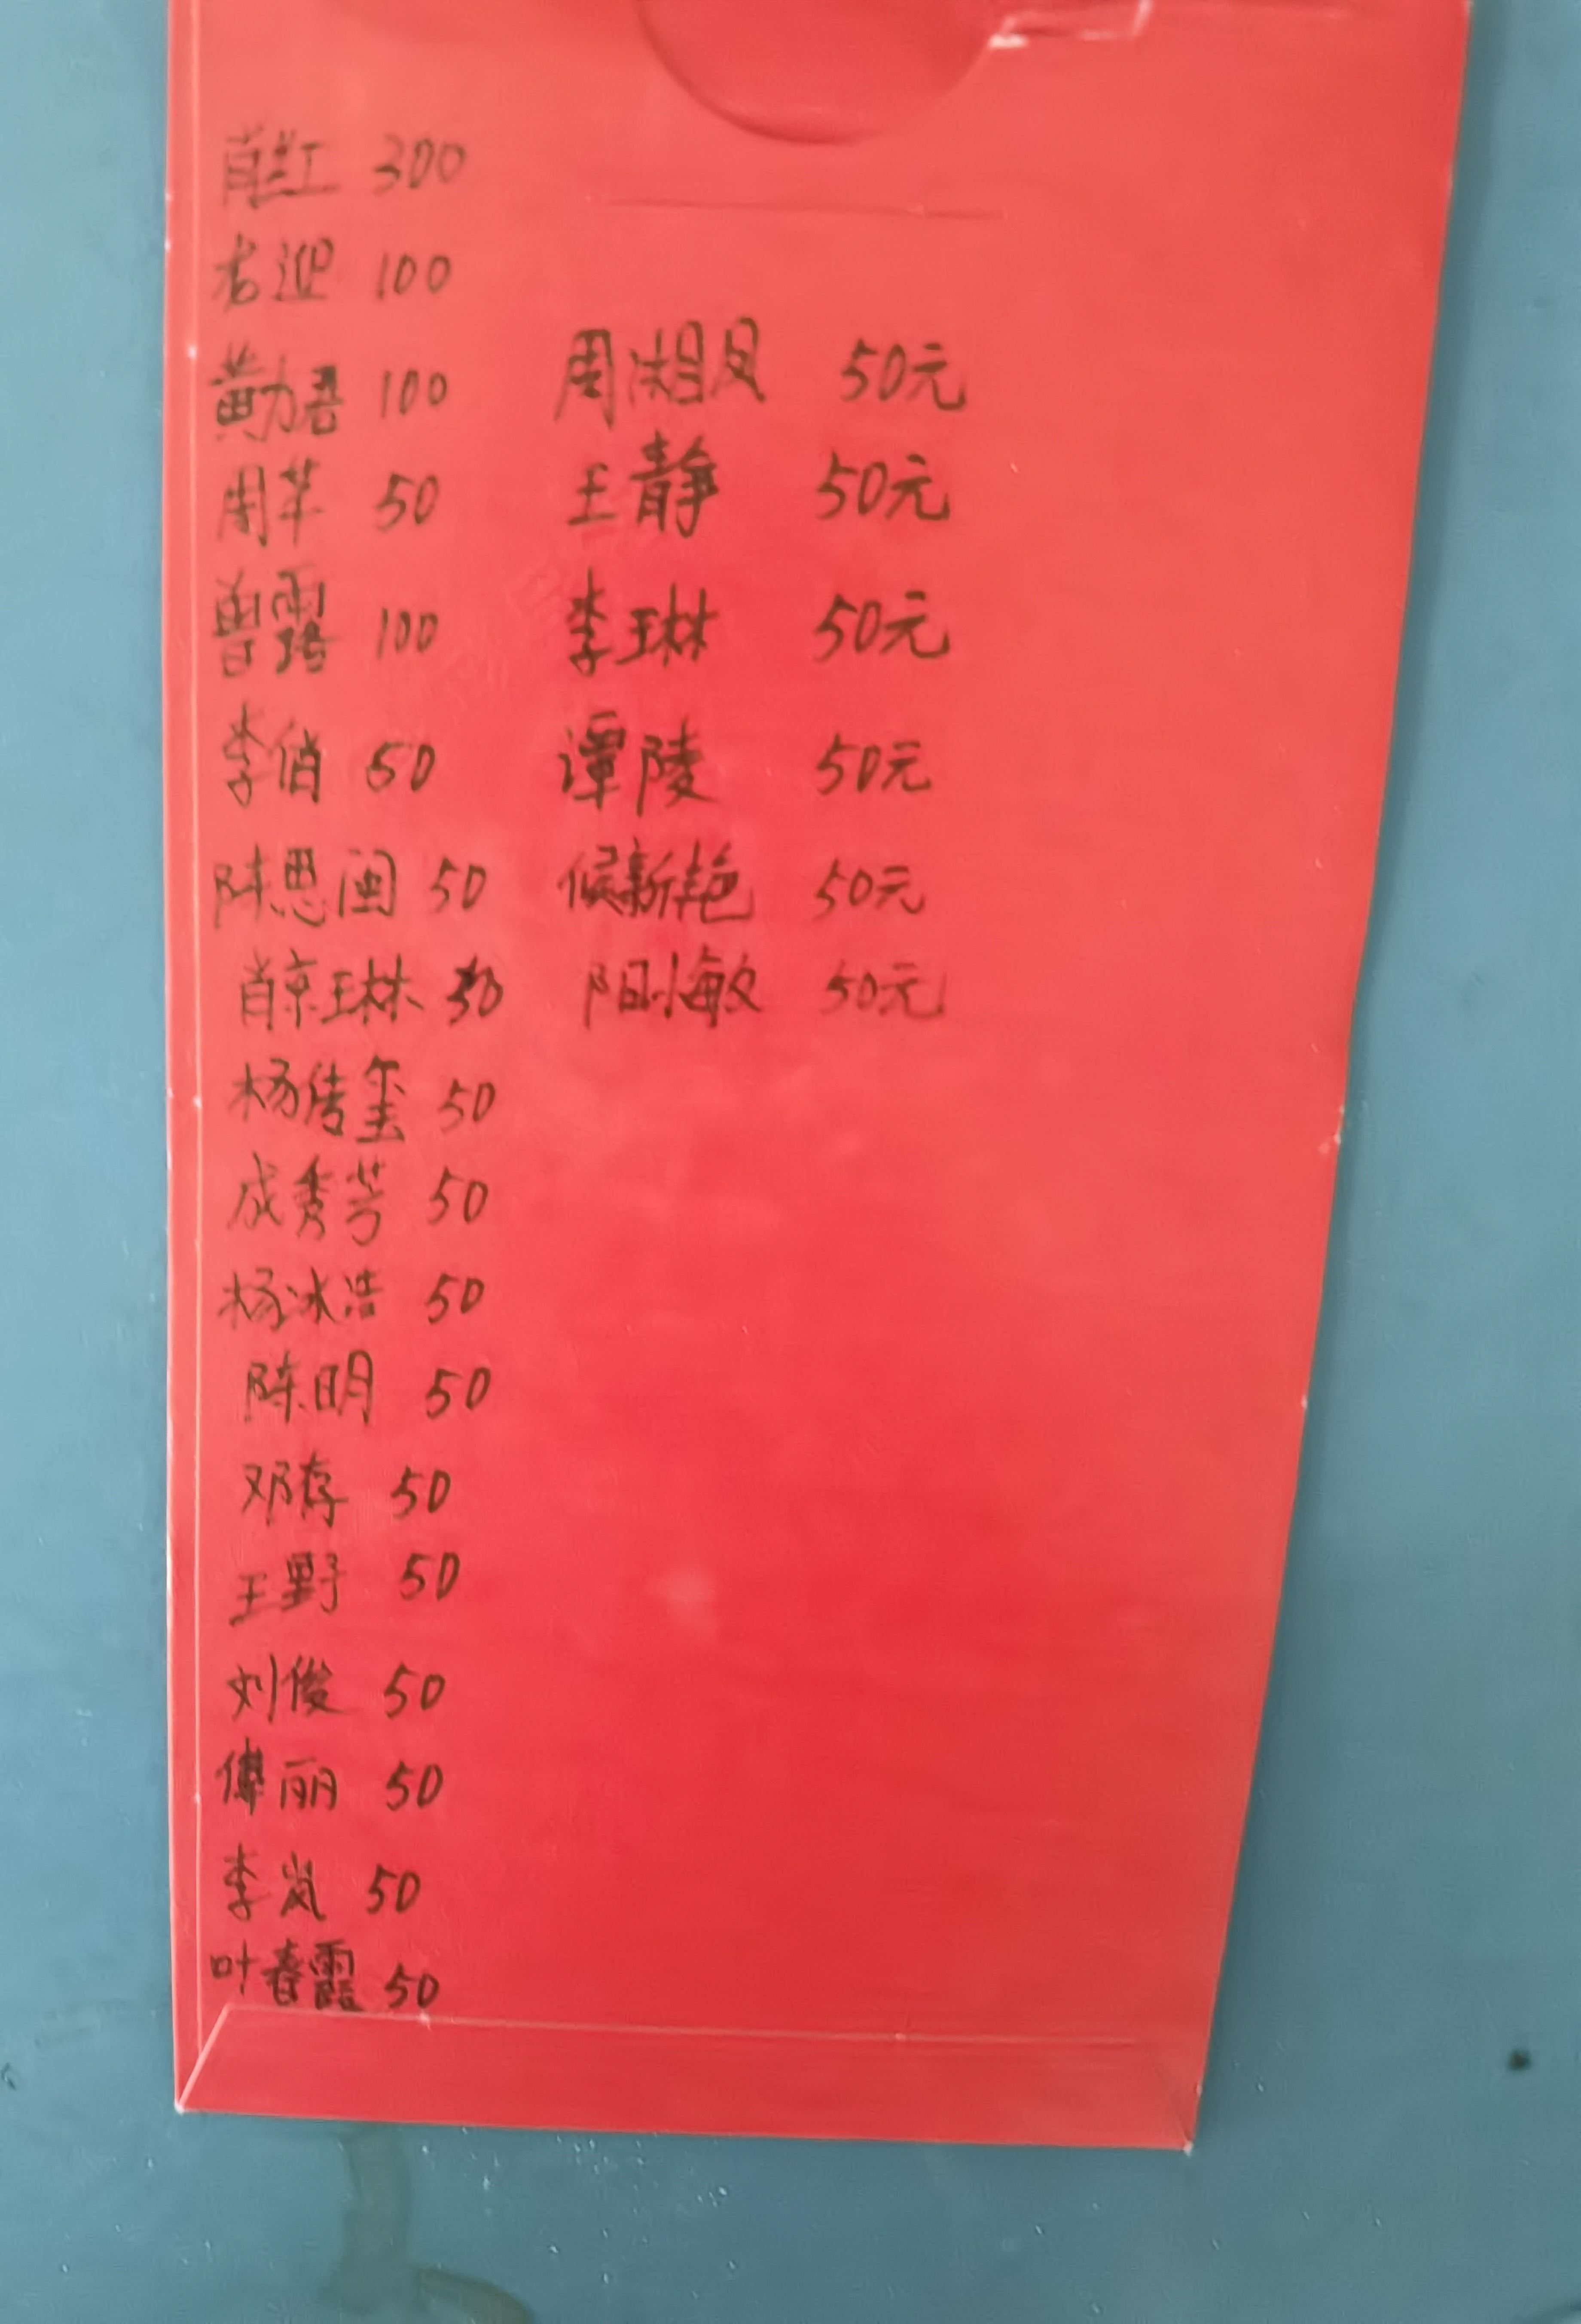 肖红 300
李迎 100
黄力吾 100
周苹 50
曾露 100
李俏 50
陈思闽 50
肖京琳 50
杨倩玺 50
成秀芳 50
杨冰浩 50
陈明 50
邓存 50
王野 50
刘俊 50
傅丽 50
李岚 50
叶春霞 50
周湘凤 50元
王静 50元
李琳 50元
谭陵 50元
候新艳 50元
阳小敏 50元